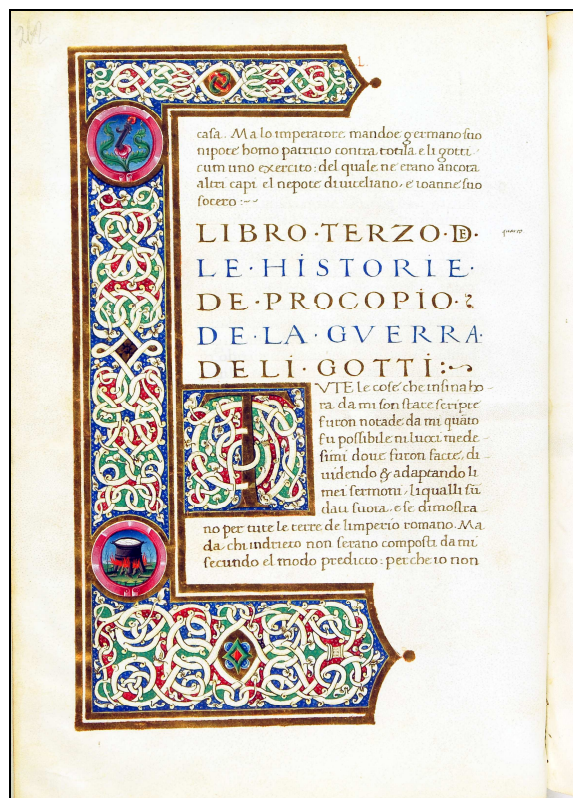 262
casa. Ma lo imperatore mandoe germano suo
nipote homo patricio contra totila e li gotti
cum uno exercito: del quale ne erano ancora
altri capi el nepote di uiteliano, e ioanne suo
socero :~
LIBRO·TERZO·DE·
LE·HISTORIE·
DE·PROCOPIO·
DE·LA·GVERRA·
DELI·GOTTI:~
TVTE le cose che insina ho-
ra da mi son state scripte
furon notade da mi quāto
fu possibile ni luoci mede-
simi doue furon facte, di-
uidendo & adaptando li
mei sermoni li qualli sū
dati fuora, e se dimostra-
no per tute le terre de limperio romano. Ma
da chi indrieto non serano composti da mi
secundo el modo predicto: perche io non